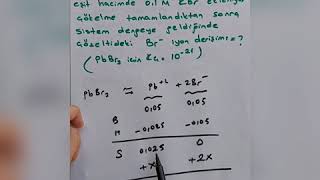 eşit hacimde 0,1 M KBr ekleniyor
çökelme tamamlandıktan sonra
sistem dengeye geldiğinde
çözeltideki Br⁻ iyon derişimi = ?
( PbBr₂ için Kçç = 10⁻²¹ )
PbBr₂ ⇌ Pb⁺² + 2Br⁻
0,05 0,05
B
-0,025 -0,05
S 0,025 0
+x +2x